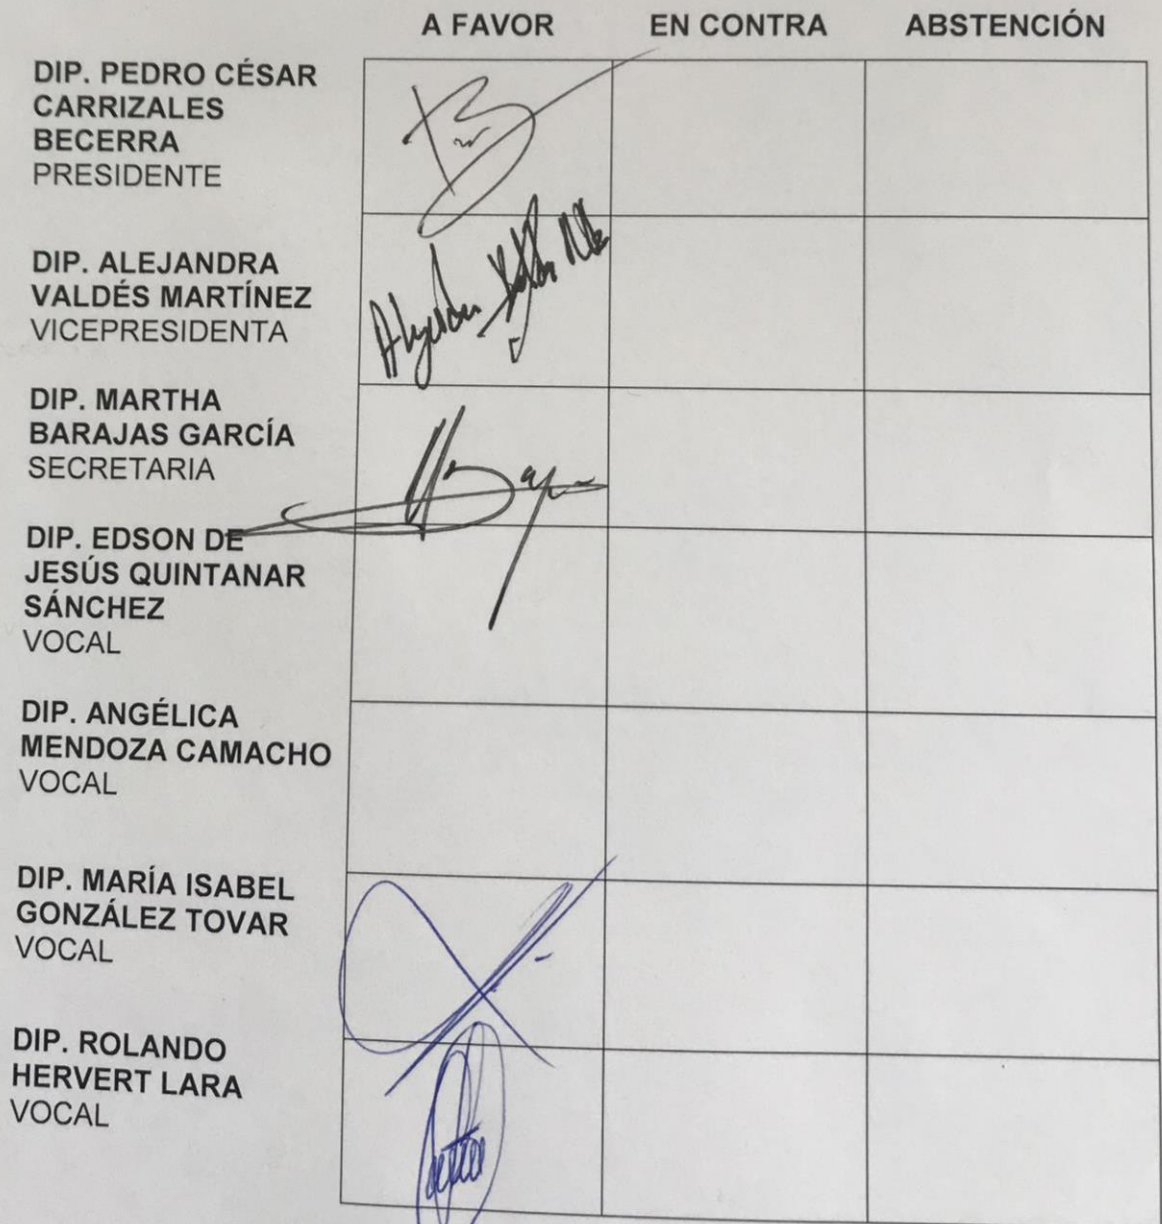 A FAVOR EN CONTRA ABSTENCIÓN
DIP. PEDRO CÉSAR
CARRIZALES
BECERRA
PRESIDENTE
DIP. ALEJANDRA
VALDÉS MARTÍNEZ
VICEPRESIDENTA
DIP. MARTHA
BARAJAS GARCÍA
SECRETARIA
DIP. EDSON DE
JESÚS QUINTANAR
SÁNCHEZ
VOCAL
DIP. ANGÉLICA
MENDOZA CAMACHO
VOCAL
DIP. MARÍA ISABEL
GONZÁLEZ TOVAR
VOCAL
DIP. ROLANDO
HERVERT LARA
VOCAL